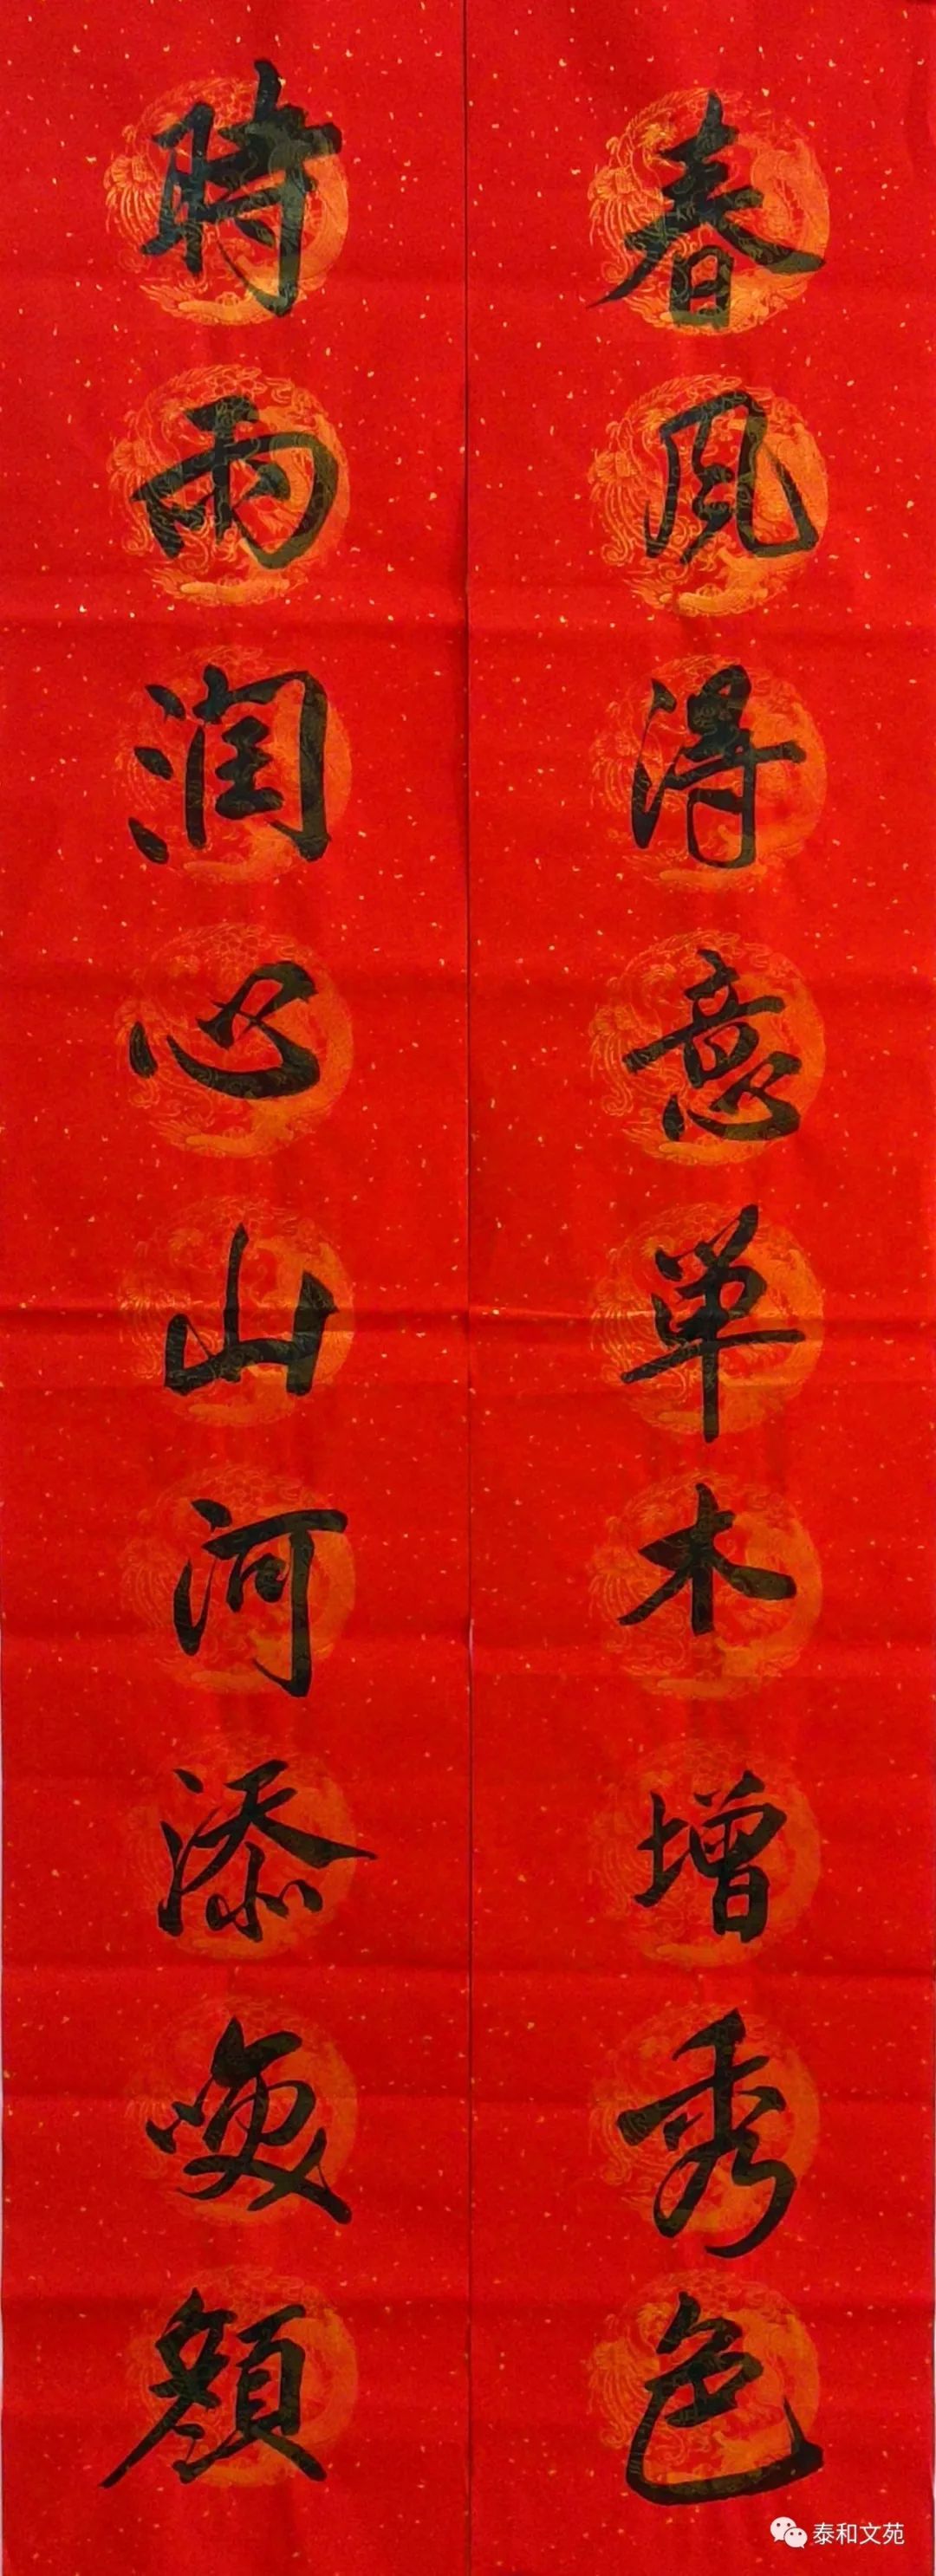 春风得意草木增秀色
時雨润心山河添顏
泰和文苑